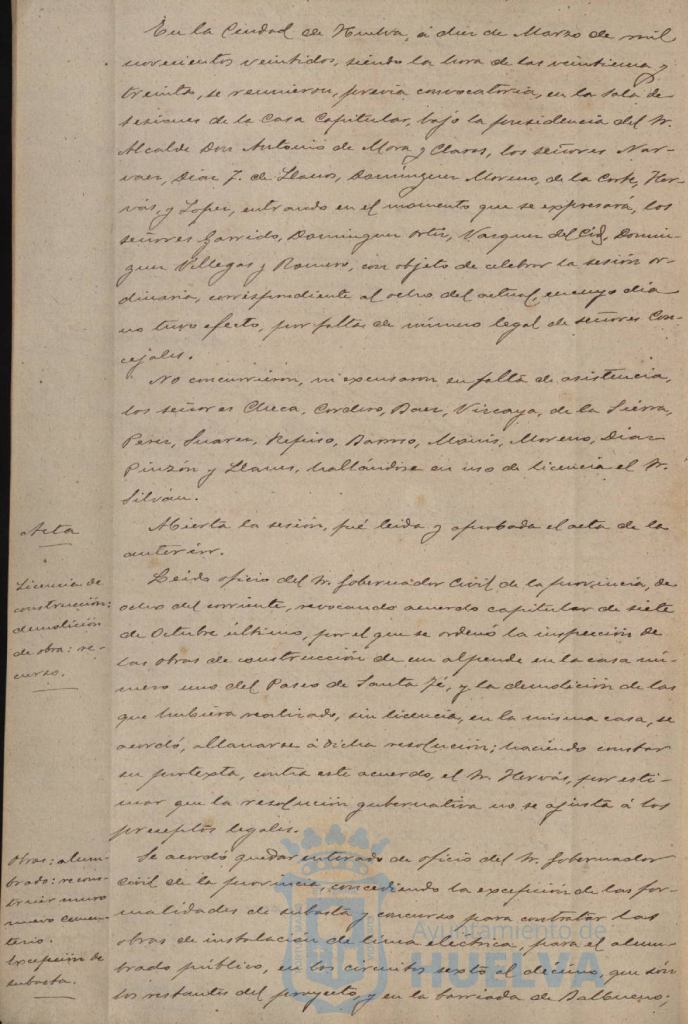 En la Ciudad de Huelva, á diez de Marzo de mil
novecientos veintidos, siendo la hora de las veintiuna y
treinta, se reunieron, previa convocatoria, en la sala de
sesiones de la Casa Capitular, bajo la presidencia del Sr.
Alcalde Don Antonio de Mora y Claros, los señores Nar-
vaez, Diaz F. de Llanos, Dominguez Moreno, de la Corte, Her-
vás, y Lopez, entrando en el momento que se expresará, los
señores Garrido, Dominguez Ortiz, Vazquez del Cid, Domin-
guez Villegas y Romero, con objeto de celebrar la sesión or-
dinaria, correspondiente al ocho del actual, en cuyo dia
no tuvo efecto, por falta de número legal de señores Con-
cejales.
No concurrieron, ni excusaron su falta de asistencia,
los señores Checa, Cordero, Baez, Vizcaya, de la Sierra,
Perez, Suarez, Repiso, Barroso, Moreno, Diaz
Pinzón y Llanes, hallándose en uso de licencia el Sr.
Silván.
Acta
Abierta la sesión, fué leida y aprobada el acta de la
anterior.
Licencia de
construcción:
demolición
de obra: re-
curso.
Leido oficio del Sr. Gobernador Civil de la provincia, de
ocho del corriente, revocando acuerdo capitular de siete
de Octubre último, por el que se ordenó la inspección de
las obras de construcción de un alpende en la casa nú-
mero uno del Paseo de Santa Fé, y la demolición de las
que hubiera realizado, sin licencia, en la misma casa, se
acordó, allanarse á dicha resolución; haciendo constar
su protexta, contra este acuerdo, el Sr. Hervás, por esti-
mar que la resolución gubernativa no se ajusta á los
preceptos legales.
Obras: alum-
brado: recons-
truir muro
nuevo Cemen-
terio.
Excepción de
subasta.
Se acordó quedar enterado de oficio del Sr. Gobernador
Civil de la provincia, concediendo la excepción de las for-
malidades de subasta y concurso para contratar las
obras de instalación de linea eléctrica, para el alum-
brado público, en los circuitos sexto al décimo, que són
los restantes del proyecto, y en la barriada de Balbueno;
Ayuntamiento de
HUELVA